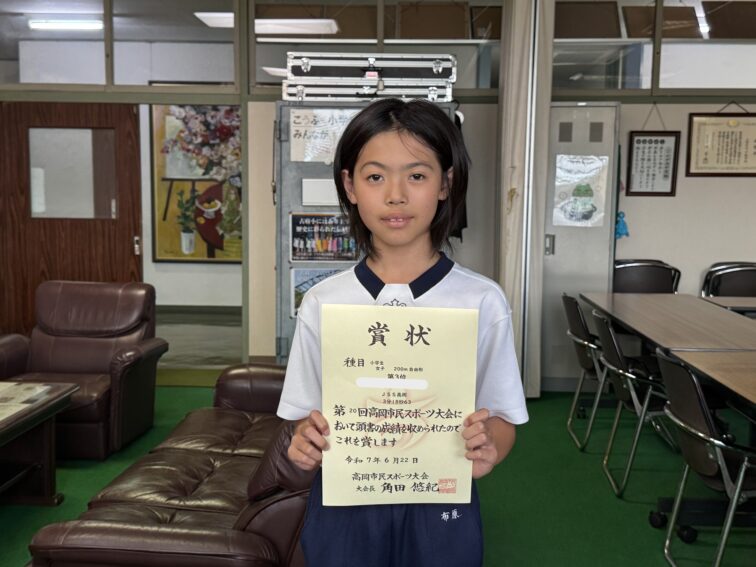 こうふ小学
みんなが
古府小には
歴史に彩られた
賞状
種目 小学生 女子 200m自由形
第3位
JSS高岡
3分18秒63
第20回高岡市民スポーツ大会に
おいて頭書の成績を収められたので
これを賞します
令和7年6月22日
高岡市民スポーツ大会
大会長 角田悠紀
布原